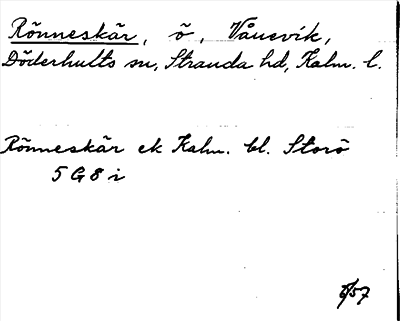 Rönneskär, ö, Vånevik,
Döderhults sn, Stranda hd, Kalm. l.
Rönneskär ek Kalm. bl. Storö
5 G 8 i